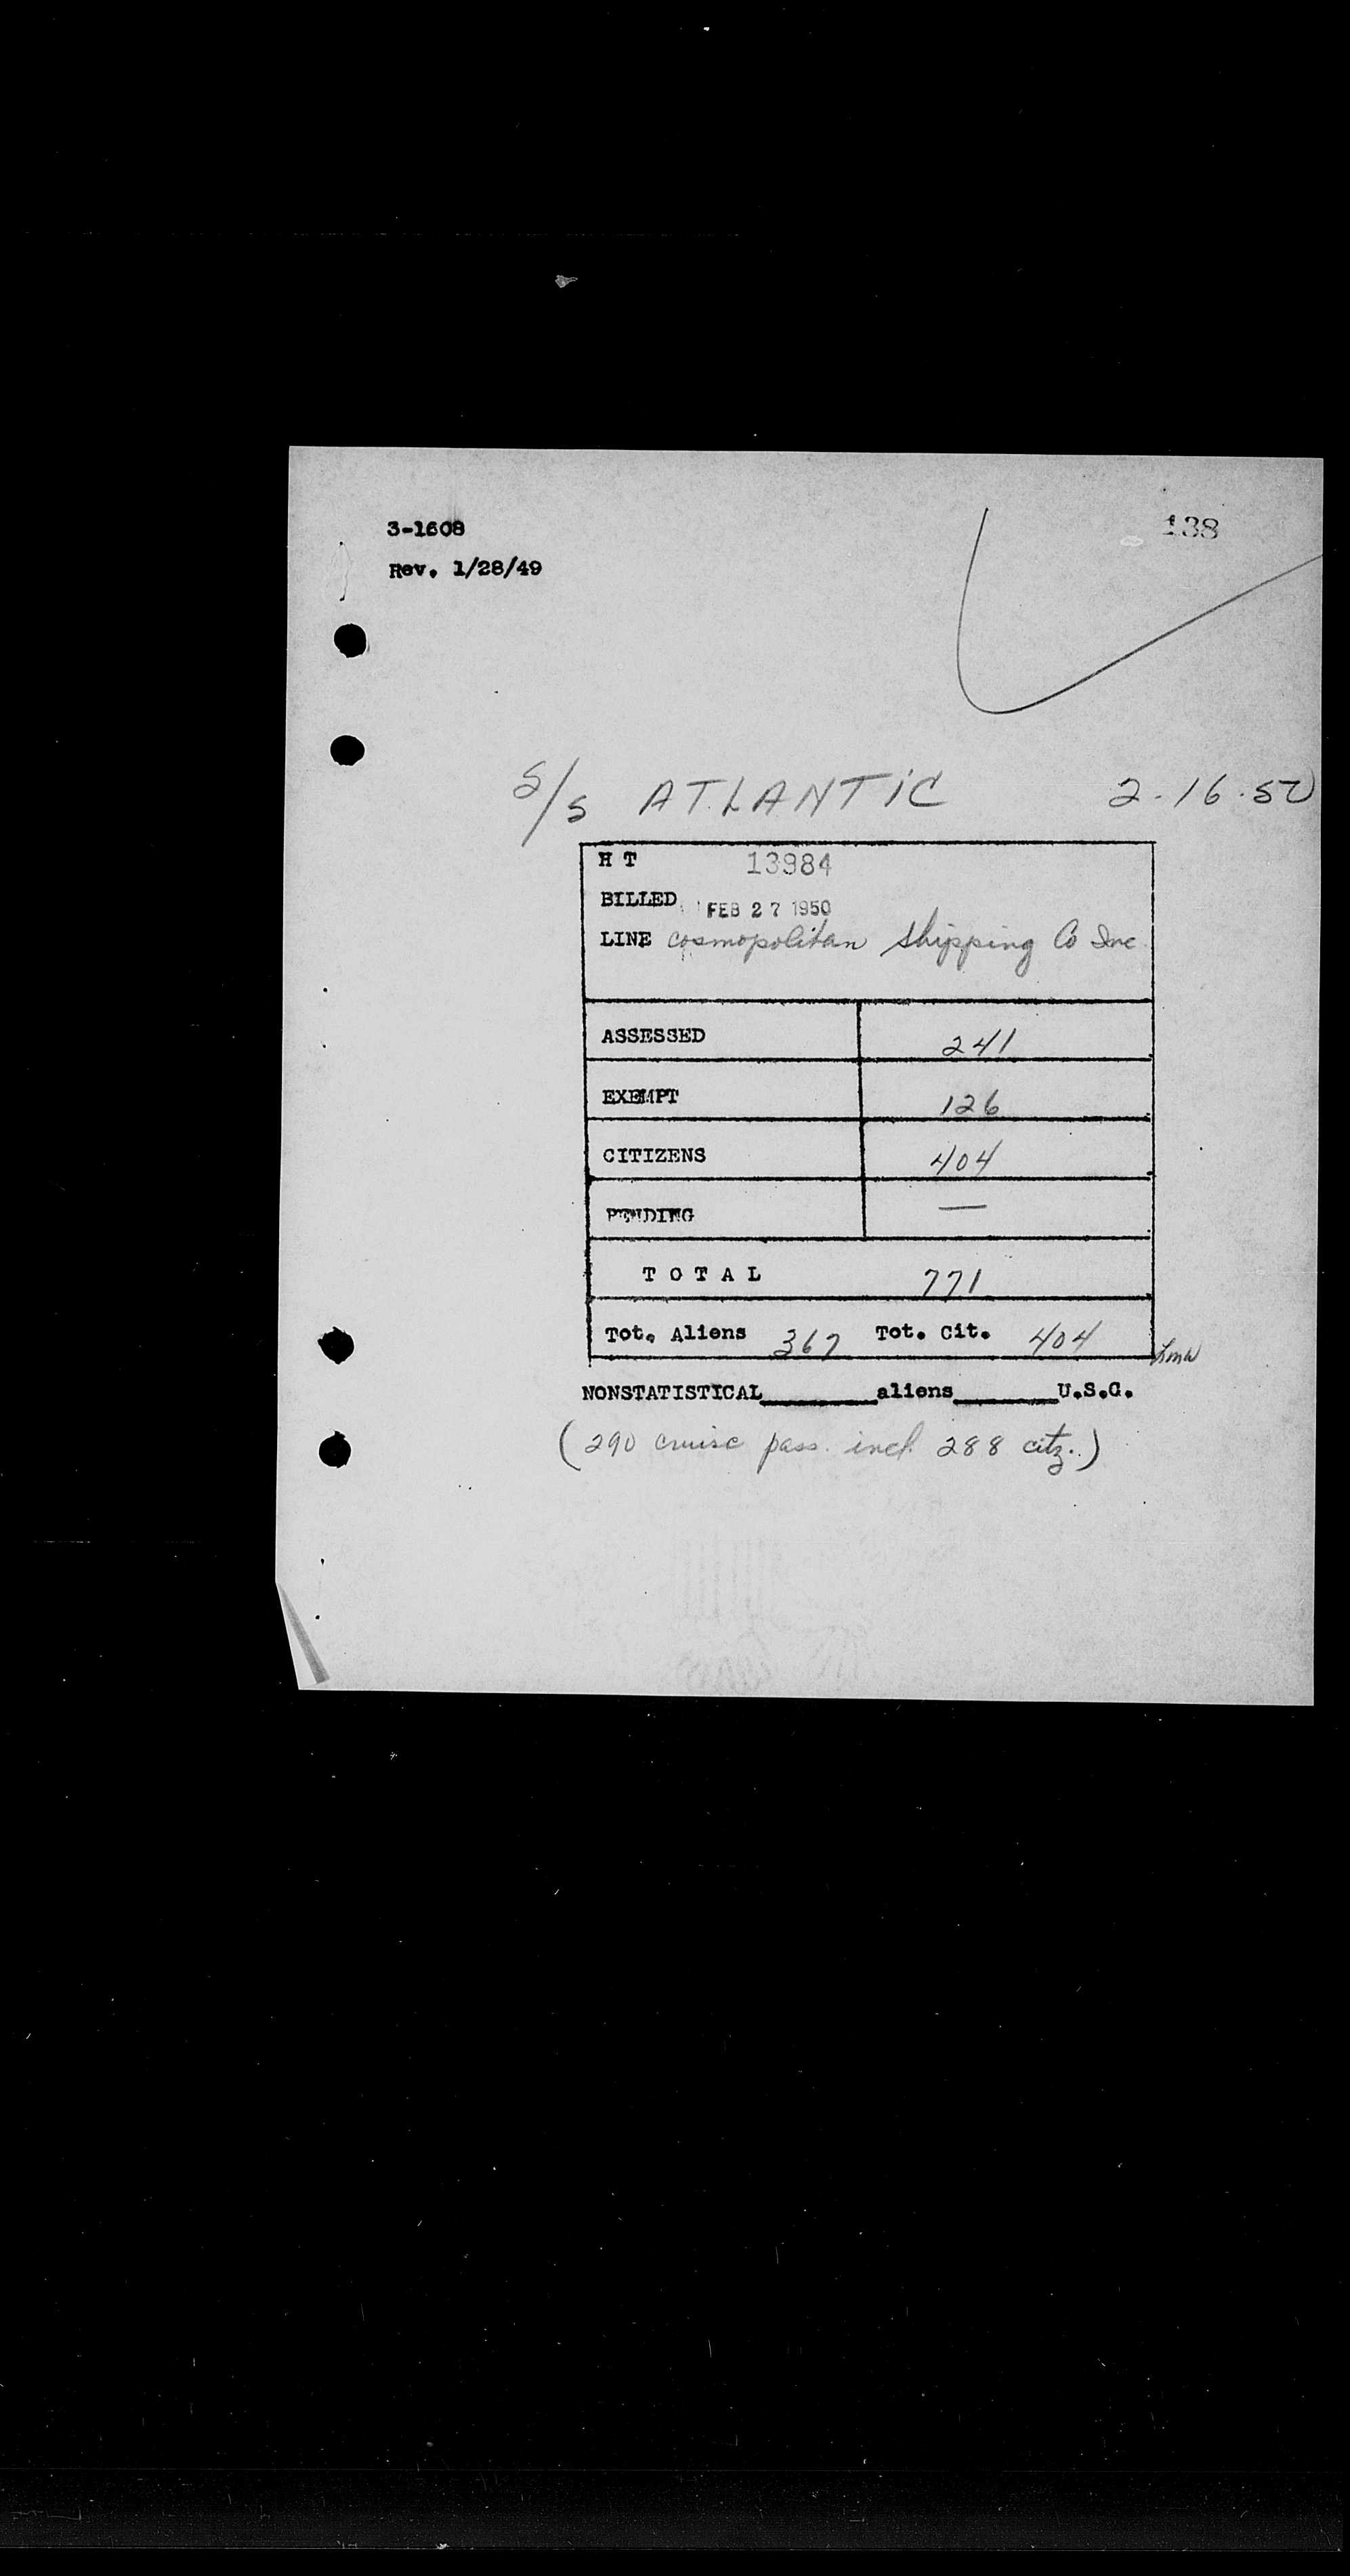 3-1608
138
Rev. 1/28/49
S/S ATLANTIC 2.16.50
H T 13984
BILLED FEB 27 1950
LINE Cosmopolitan Shipping Co Inc.
ASSESSED 241
EXEMPT 126
CITIZENS 404
PENDING —
T O T A L 771
Tot. Aliens 367 Tot. Cit. 404
NONSTATISTICAL________aliens_______U.S.C.
(290 cruise pass. incl. 288 citz.)